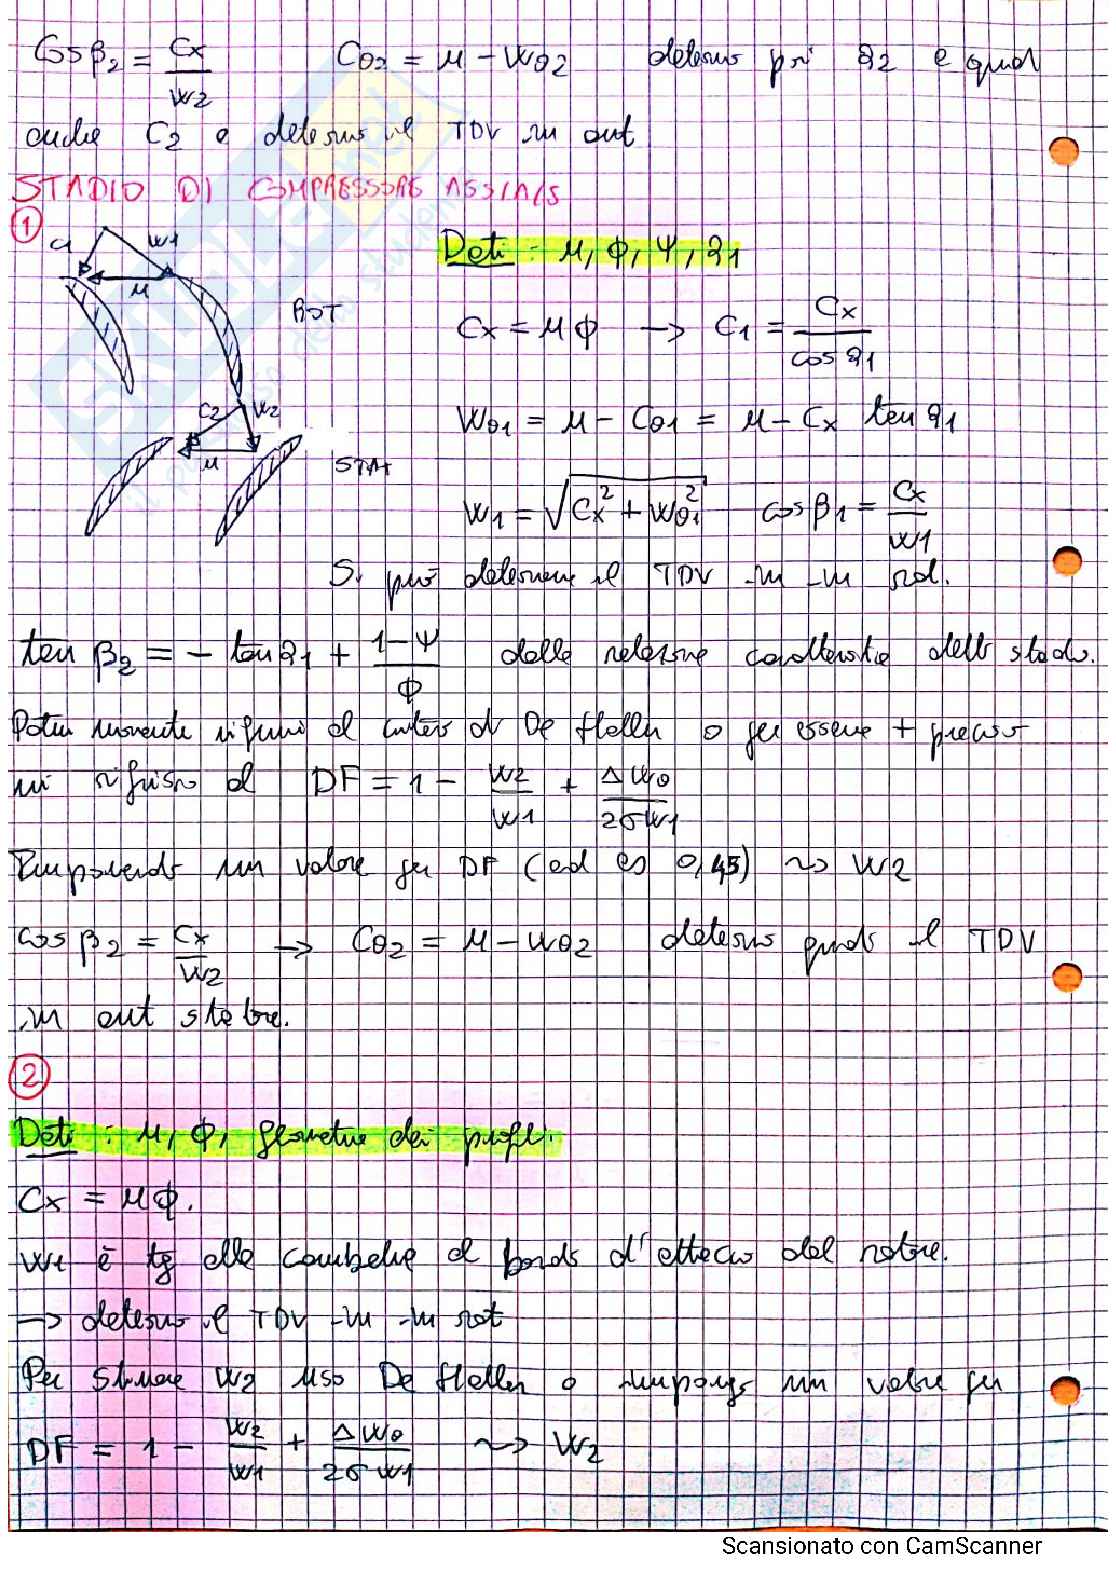 cos β2 = Cx / W2    Cθ2 = μ - Wθ2    determino poi α2 e quindi
anche C2 e determino il TDV in out
STADIO DI COMPRESSORE ASSIALE
1
C1 W1
Dati: μ, φ, Ψ, α1
μ
ROT
Cx = μ φ → C1 = Cx / cos α1
C2 W2
Wθ1 = μ - Cθ1 = μ - Cx tan α1
μ
STAT
W1 = √(Cx² + Wθ1²)    cos β1 = Cx / W1
Si può determinare il TDV in in rot.
tan β2 = - tan α1 + (1-Ψ) / φ    dalla relazione caratteristica dello stadio.
Potrei nuovamente rifarmi al criterio di De Haller o per essere + preciso
mi riferisco al DF = 1 - W2 / W1 + ΔWθ / 2σW1
Imponendo un valore per DF (ad es 0,45) ~> W2
cos β2 = Cx / W2 → Cθ2 = μ - Wθ2    determino quindi il TDV
in out statore.
2
Dati: μ, φ, geometria dei profili.
Cx = μφ.
W1 è tg alla camberline al bordo d'attacco del rotore.
→ determino il TDV in in rot
Per stimare W2 uso De Haller o impongo un valore per
DF = 1 - W2 / W1 + ΔWθ / 2σ W1 ~> W2
Scansionato con CamScanner